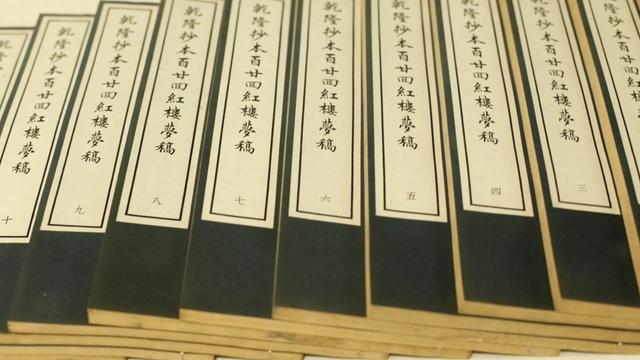 隆抄本百廿回紅樓
乾隆抄本百廿回紅樓夢稿
三
乾隆抄本百廿回紅樓夢稿
四
乾隆抄本百廿回紅樓夢稿
五
乾隆抄本百廿回紅樓夢稿
六
乾隆抄本百廿回紅樓夢稿
七
乾隆抄本百廿回紅樓夢稿
八
乾隆抄本百廿回紅樓夢稿
九
乾隆抄本百廿回紅樓夢稿
十